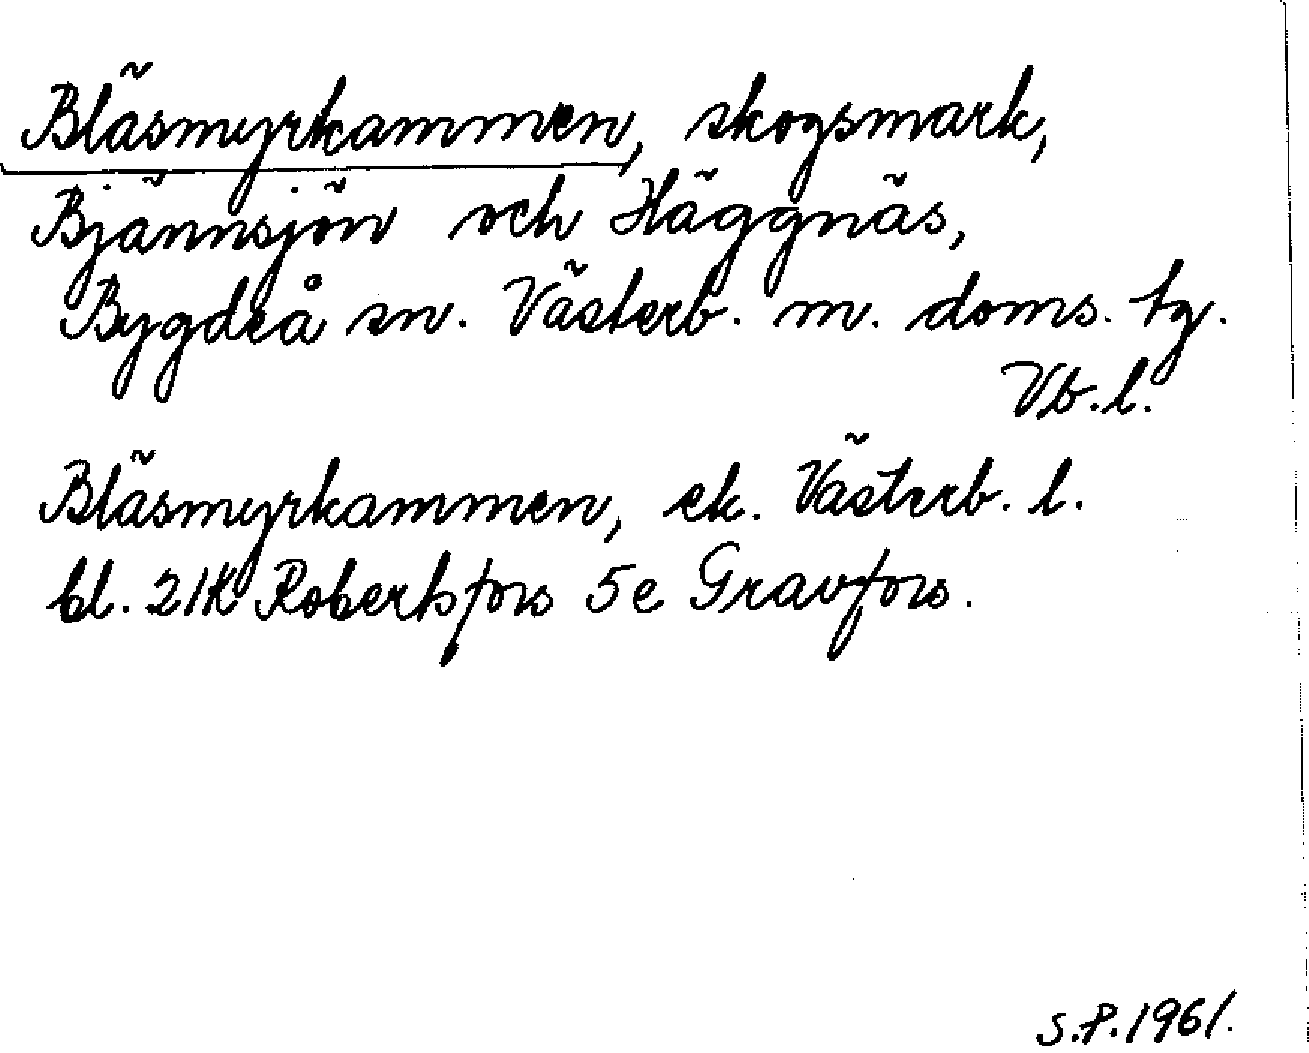 Bläsmyrkammen, skogsmark,
Bjännsjön och Häggnäs,
Bygdeå sn. Västerb. m. doms. tg.
Vb. l.
Bläsmyrkammen, ek. Västerb. l.
bl. 21K Robertsfors 5e Gravfors.
S.P. 1961.